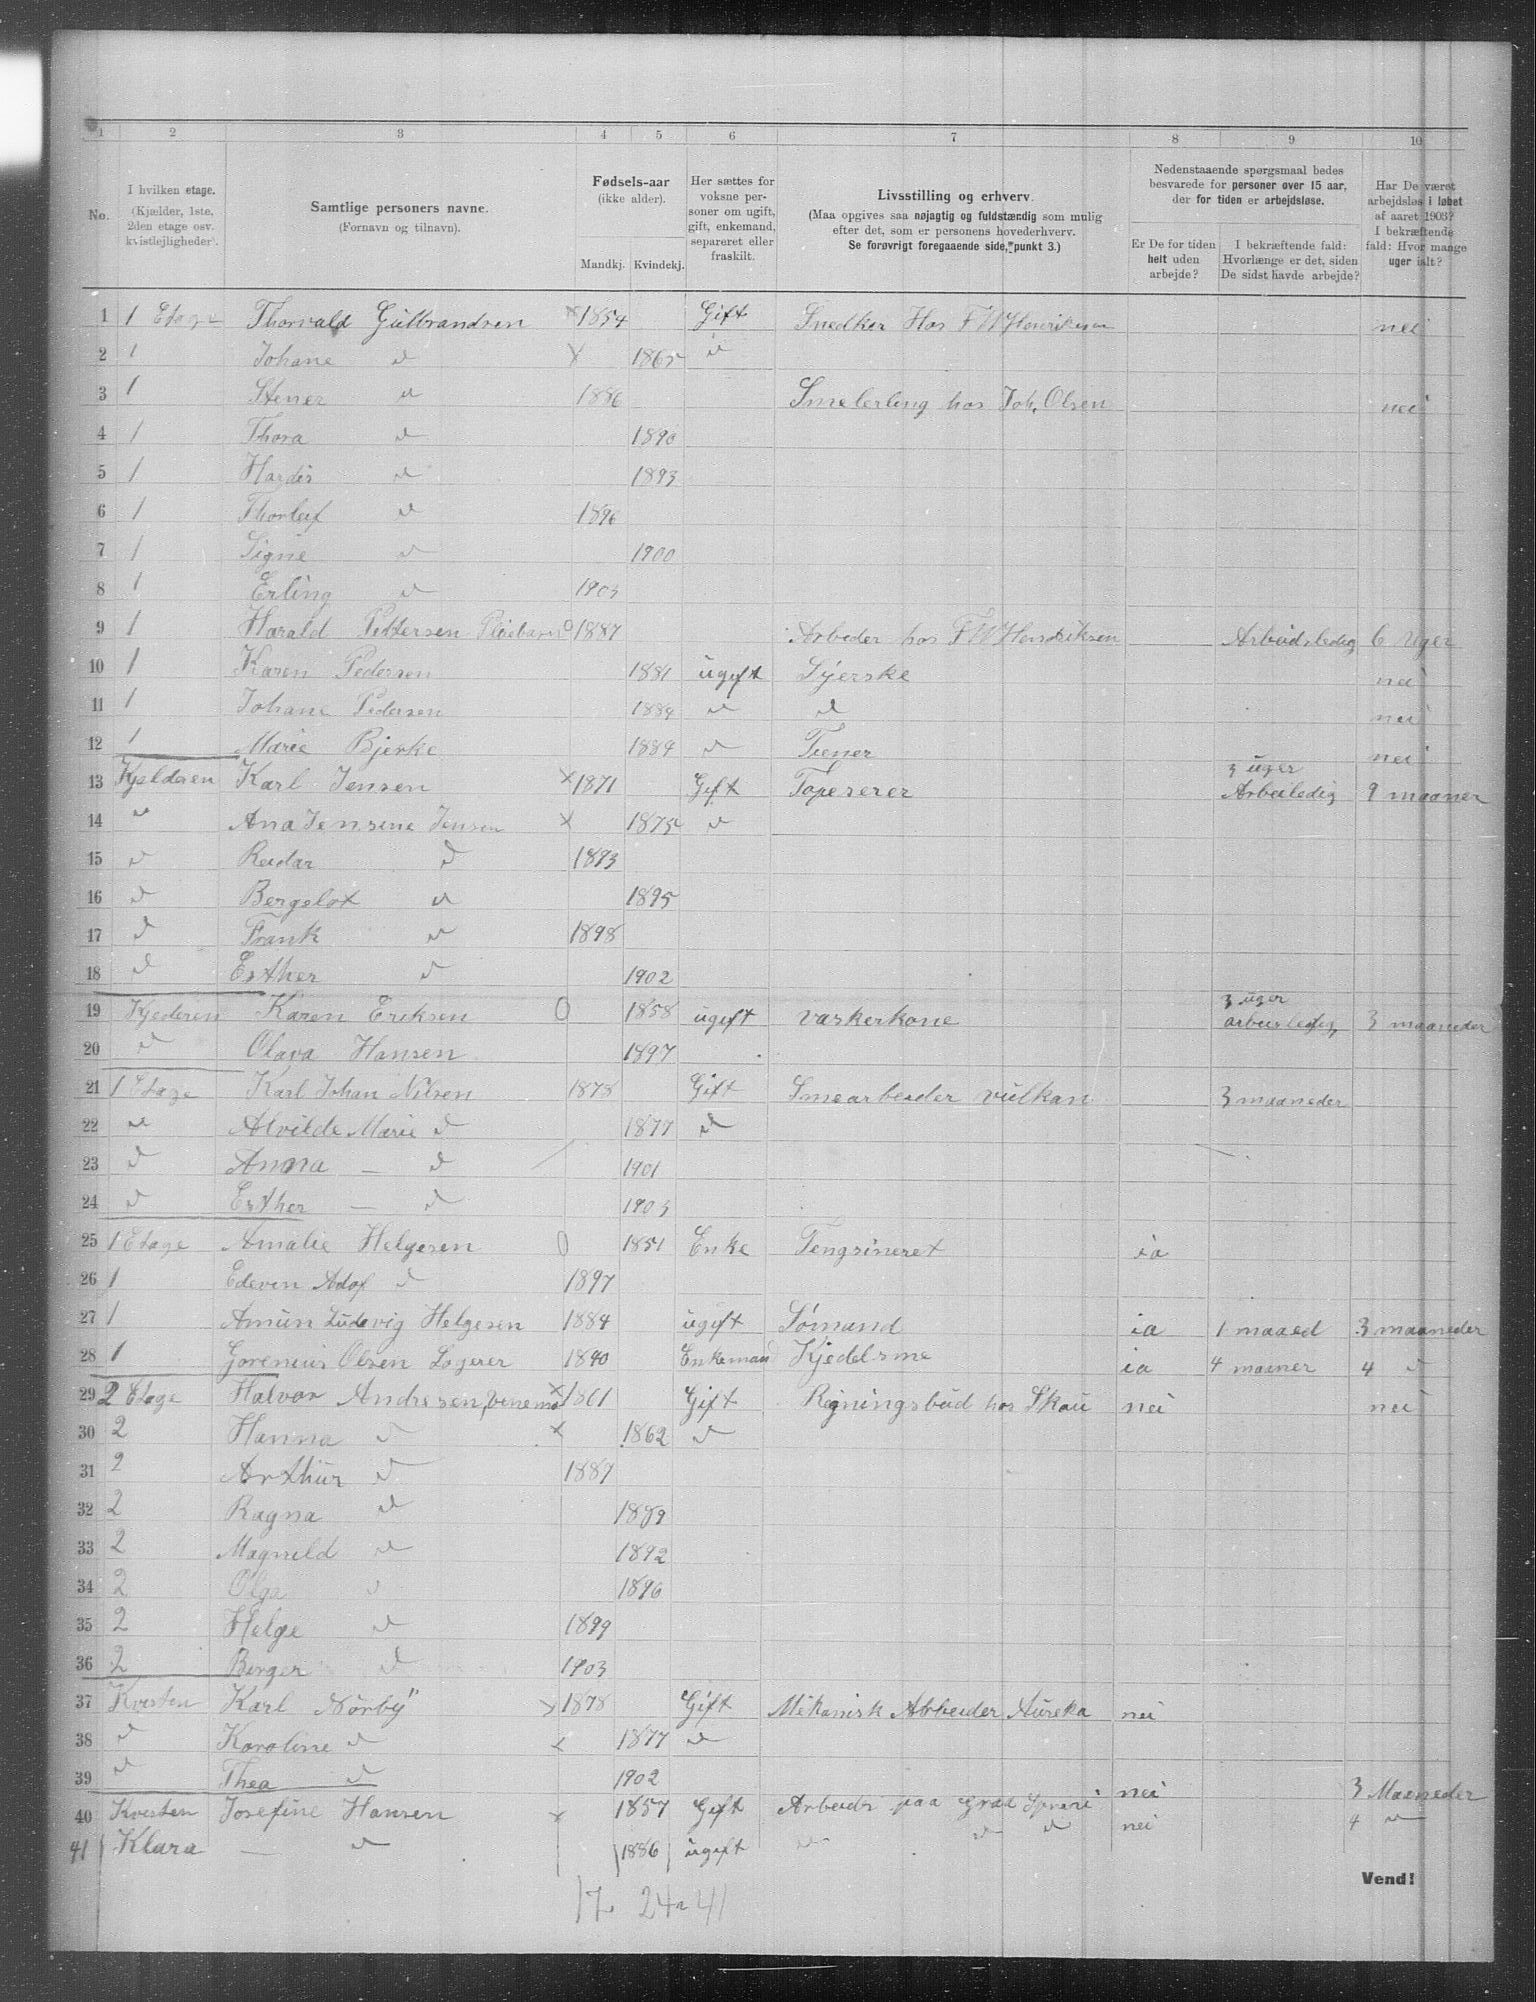 1 2 3 4 5 6 7 8 9 10
No. I hvilken etage. (Kjælder, 1ste, 2den etage osv. kvistlejligheder). Samtlige personers navne. (Fornavn og tilnavn). Fødsels-aar (ikke alder). Mandkj. Kvindekj. Her sættes for voksne personer om ugift, gift, enkemand, separeret eller fraskilt. Livsstilling og erhverv. (Maa opgives saa nøjagtig og fuldstændig som mulig efter det, som er personens hovederhverv. Se forøvrigt foregaaende side, punkt 3.) Nedenstaaende spørgsmaal bedes besvarede for personer over 15 aar, der for tiden er arbejdsløse. Er De for tiden helt uden arbejde? I bekræftende fald: Hvorlænge er det, siden De sidst havde arbejde? Har De været arbejdsløs i løbet af aaret 1903? I bekræftende fald: Hvor mange uger ialt?
1 1 Etage Thorvald Gulbrandsen × 1854 Gift Snedker Hos F W Henriksen nei
2 1 Johane d × 1865 d
3 1 Stener d 1886 Smelerling hos Joh. Olsen nei
4 1 Thora d 1890
5 1 Hardis d 1893
6 1 Thorleif d 1896
7 1 Signe d 1900
8 1 Erling d 1903
9 1 Harald Pettersen Pleiebarn 0 1887 Arbeder hos F W Hendriksen Arbeidsledig 6 uger
10 1 Karen Pedersen 1881 ugift Syerske nei
11 1 Johane Pedersen 1884 d d nei
12 1 Marie Bjerke 1884 d Tiener nei
13 Kjelderen Karl Jensen × 1871 Gift Tapeserer 3 uger Arbeiledig 9 maaner
14 d Ana Jensine Jensen × 1875 d
15 d Reidar d 1893
16 d Bergslot d 1895
17 d Frank d 1898
18 d Esther d 1902
19 Kjederen Karen Eriksen 0 1858 ugift vaskerkone 3 uger arbeisledig 3 maaneder
20 d Olava Hansen 1897
21 1 Etage Karl Johan Nilsen 1878 Gift Smearbeider vulkan 3 maaneder
22 d Alvilde Marie d 1877 d
23 d Anna — d 1901
24 d Esther — d 1903
25 1 Etage Amalie Helgesen 0 1851 Enke Tengsineret ia
26 1 Edevin Adof d 1897
27 1 Amun Ludevig Helgesen 1884 ugift Sømand ia 1 maaed 3 maaneder
28 1 Gorenius Olsen Logerer 1840 Enkemand Kjedelsme ia 4 maaner 4 d
29 2 Etage Halvor Andresen × 1861 Gift Regningsbud hos Skau nei nei
30 2 Hanna d × 1862 d
31 2 Arthur d 1887
32 2 Ragna d 1889
33 2 Magnild d 1892
34 2 Olga d 1896
35 2 Helge d 1899
36 2 Berger d 1903
37 Kvisten Karl Nórby" × 1878 Gift Mekanisk Arbeider Aureka nei
38 d Karoline d × 1877 d
39 d Thea d 1902
40 Kvisten Josefine Hansen × 1857 Gift Arbeider paa nei 3 Maaneder
41 Klara — d 1886 ugift d d d nei 4 d
Vend!
17 24 = 41